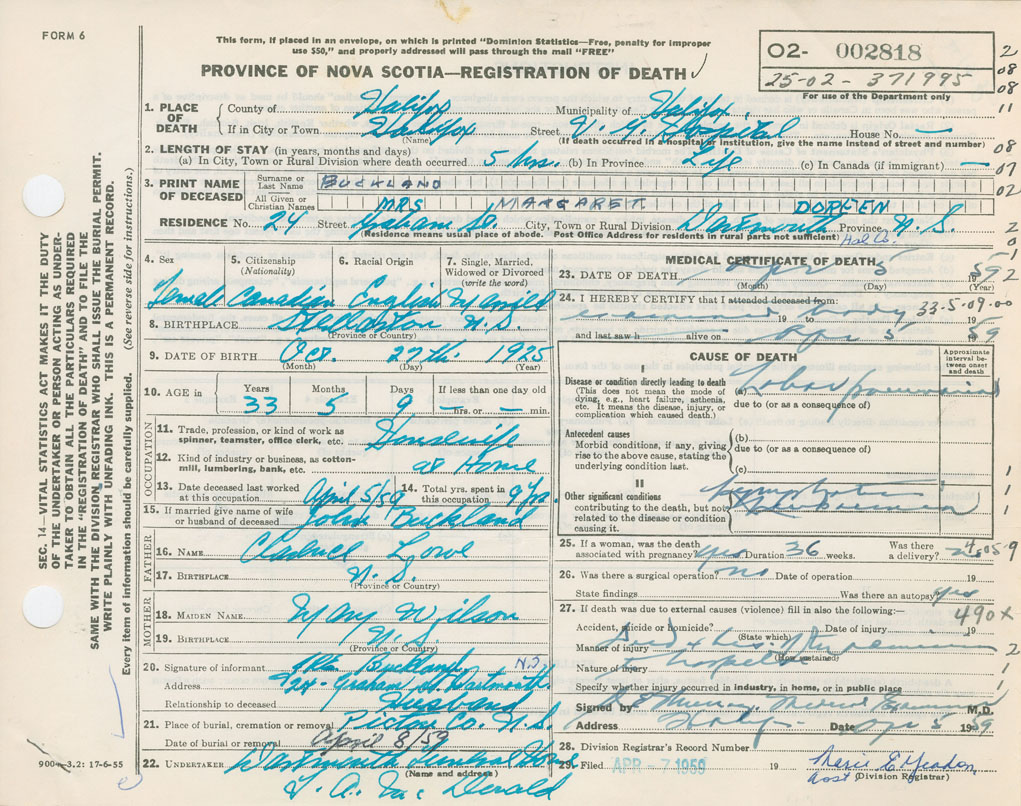 FORM 6
This form, if placed in an envelope, on which is printed "Dominion Statistics—Free, penalty for improper
use $50," and properly addressed will pass through the mail "FREE"
PROVINCE OF NOVA SCOTIA—REGISTRATION OF DEATH
02- 002818
25-02-371995
For use of the Department only
2
08
08
11
08
07
02
2
0
1
2
1. PLACE OF DEATH
County of Halifax Municipality of Halifax
If in City or Town Halifax Street V. G. Hospital House No. —
(Name) (If death occurred in a hospital or institution, give the name instead of street and number)
2. LENGTH OF STAY (in years, months and days)
(a) In City, Town or Rural Division where death occurred 5 hrs. (b) In Province Life (c) In Canada (if immigrant) —
3. PRINT NAME OF DECEASED
Surname or Last Name BUCKLAND
All Given or Christian Names MRS MARGARET DOREEN
RESIDENCE No. 24 Street Graham St. City, Town or Rural Division Dartmouth Province N.S.
(Residence means usual place of abode. Post Office Address for residents in rural parts not sufficient) Hal Co.
4. Sex 5. Citizenship (Nationality) 6. Racial Origin 7. Single, Married, Widowed or Divorced (write the word)
Female Canadian English Married
8. BIRTHPLACE Stellarton N.S.
(Province or Country)
9. DATE OF BIRTH Oct. 27th 1925
(Month) (Day) (Year)
10. AGE in Years Months Days If less than one day old
33 5 9 — hrs. or — min.
OCCUPATION
11. Trade, profession, or kind of work as spinner, teamster, office clerk, etc. Housewife
12. Kind of industry or business, as cotton-mill, lumbering, bank, etc. at Home
13. Date deceased last worked at this occupation April 5/59 14. Total yrs. spent in this occupation 9 yrs.
15. If married give name of wife or husband of deceased John Buckland
FATHER
16. NAME Lowe
17. BIRTHPLACE N.S.
(Province or Country)
MOTHER
18. MAIDEN NAME Mary Wilson
19. BIRTHPLACE N.S.
(Province or Country)
20. Signature of informant Buckland
Address 24 - Graham St. Dartmouth N.S.
Relationship to deceased Husband
21. Place of burial, cremation or removal Pictou Co. N.S.
Date of burial or removal April 8/59
22. UNDERTAKER Dartmouth Funeral Home
(Name and address)
MEDICAL CERTIFICATE OF DEATH
23. DATE OF DEATH Apr 5 1959
(Month) (Day) (Year)
24. I HEREBY CERTIFY that I attended deceased from:
examined body 33-5-09-00
19 to 19
and last saw h alive on Apr 5 1959
CAUSE OF DEATH
Approximate interval between onset and death
I
Disease or condition directly leading to death
(This does not mean the mode of dying, e.g., heart failure, asthenia, etc. It means the disease, injury, or complication which caused death.)
(a) Lobar pneumonia
due to (or as a consequence of)
Antecedent causes
Morbid conditions, if any, giving rise to the above cause, stating the underlying condition last.
(b)
due to (or as a consequence of)
(c)
II
Other significant conditions contributing to the death, but not related to the disease or condition causing it.
1
1
1
25. If a woman, was the death associated with pregnancy? yes Duration 36 weeks. Was there a delivery?
26. Was there a surgical operation? no Date of operation 19
State findings Was there an autopsy? yes
27. If death was due to external causes (violence) fill in also the following:— 490X
Accident, suicide or homicide? Date of injury 19
(State which)
Manner of injury
(How sustained)
Nature of injury
Specify whether injury occurred in industry, in home, or in public place
Signed by M.D.
Address Date Apr 5 1959
28. Division Registrar's Record Number
29. Filed APR - 7 1959 19 Marie E.
(Division Registrar)
SEC. 14—VITAL STATISTICS ACT MAKES IT THE DUTY
OF THE UNDERTAKER OR PERSON ACTING AS UNDER-
TAKER TO OBTAIN ALL THE PARTICULARS REQUIRED
IN THE "REGISTRATION OF DEATH" AND TO FILE THE
SAME WITH THE DIVISION REGISTRAR WHO SHALL ISSUE THE BURIAL PERMIT.
WRITE PLAINLY WITH UNFADING INK. THIS IS A PERMANENT RECORD.
Every item of information should be carefully supplied. (See reverse side for instructions.)
3.2: 17-6-55